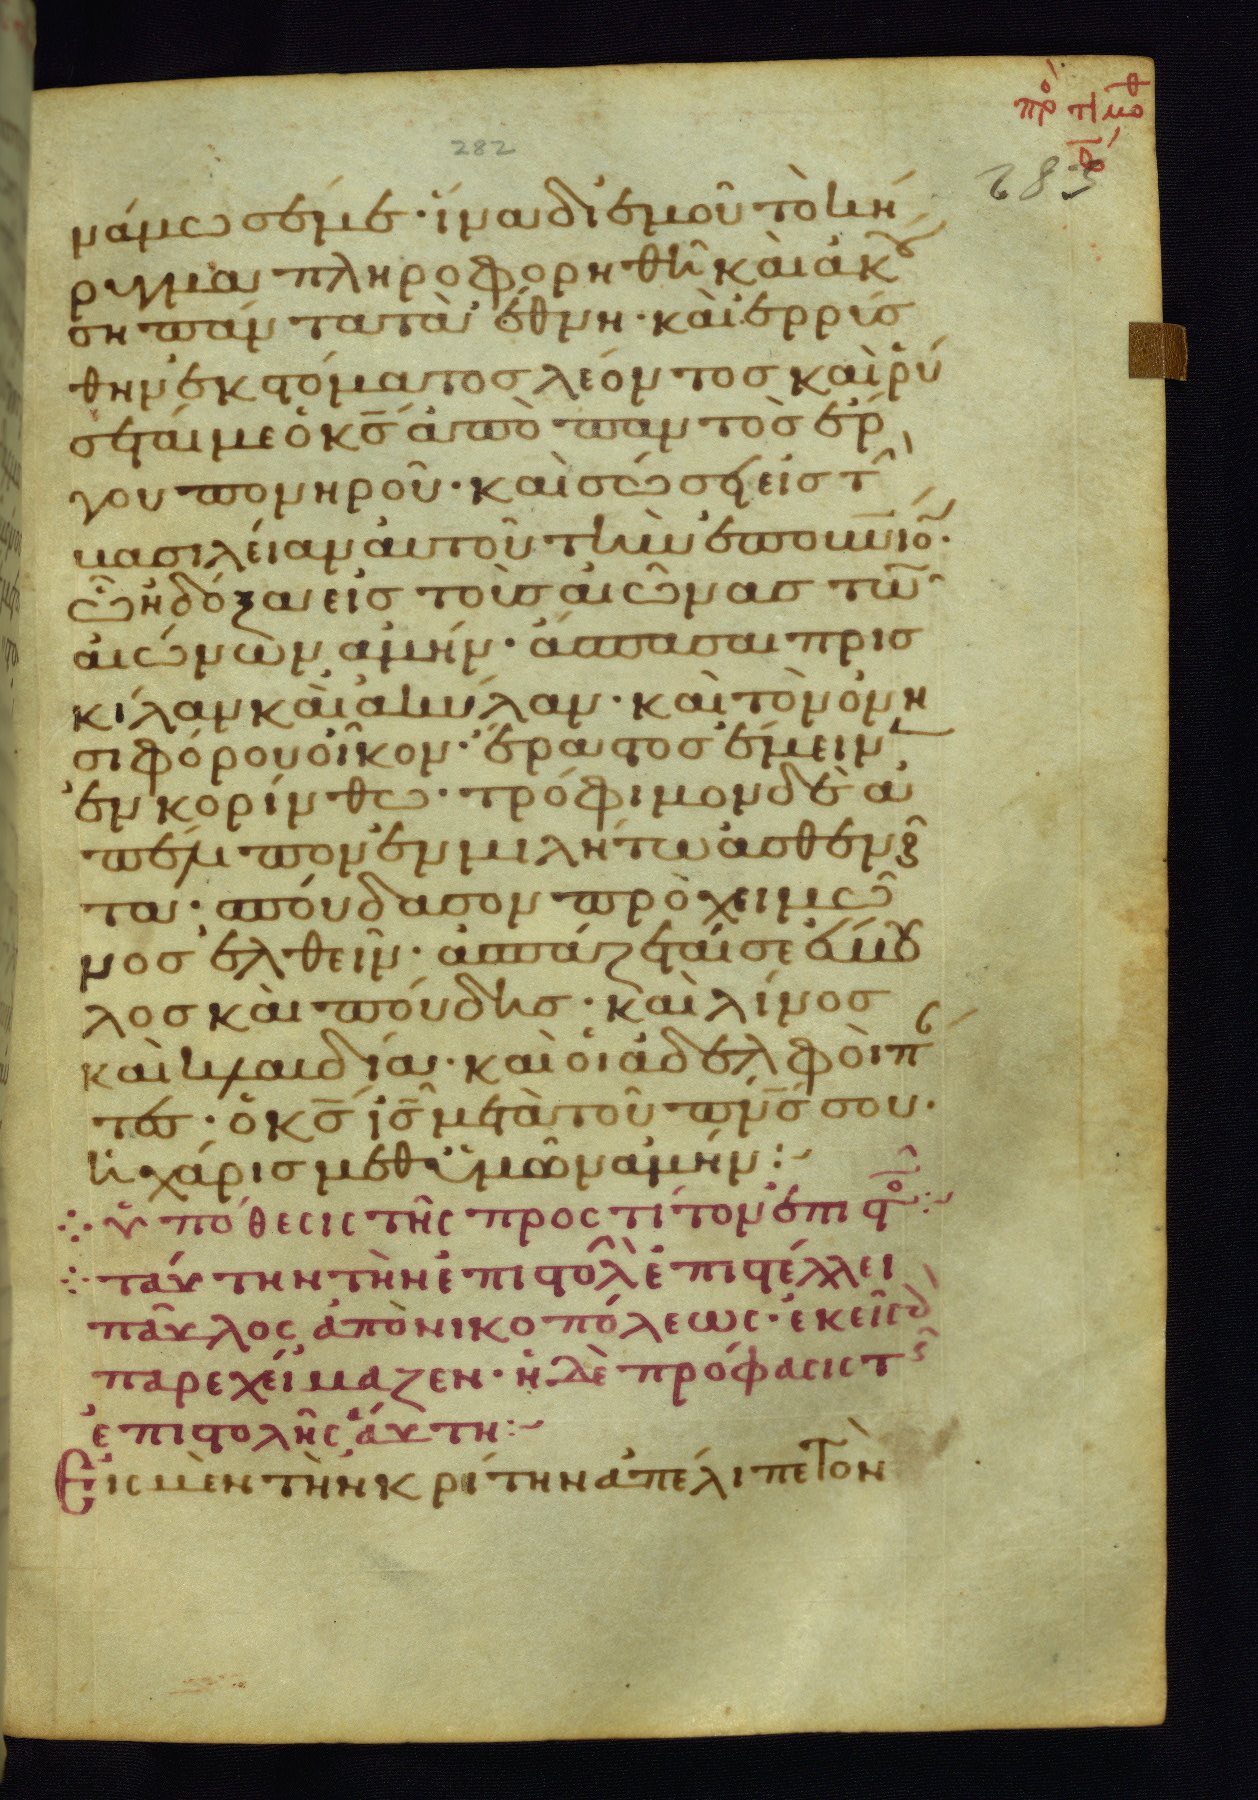 πρὸ τιμοθ
β
282
283
νάμωσέμε· ἵνα δι' ἐμοῦ τὸ κή
ρυγμα πληροφορηθῆ καὶ ἀκού
ση πάντα τὰ ἔθνη· καὶ ἐρρύσ
θην ἐκ στόματος λέοντος καὶ ῥύ
σεταί με ὁ κς ἀπὸ παντὸς ἔρ
γου πονηροῦ· καὶ σώσει εἰς τὴν
βασιλείαν αὐτοῦ τὴν ἐπουνιον·
ὧ ἡ δόξα εἰς τοὺς αἰῶνας τῶν
αἰώνων ἀμήν· ἄσπασαι πρισ
κίλαν καὶ ἀκύλαν· καὶ τὸν ὀνη
σιφόρου οἶκον· ἔραστος ἔμεινεν
ἐν κορίνθω· τρόφιμον δὲ ἀ
πέλιπον ἐν μιλήτω ἀσθενοῦν
τα· σπούδασον πρὸ χειμῶ
νος ἐλθεῖν· ἀσπάζεταί σε εὔβου
λος καὶ πούδης· καὶ λίνος
καὶ κλαυδία· καὶ οἱ ἀδελφοὶ πάν
τες· ὁ κς ις μετὰ τοῦ πνς σου·
ἡ χάρις μεθ' ὑμῶν ἀμήν:~
ὑπόθεσις τῆς προς τίτον ἐπιστολῆς:~
ταύτην τὴν ἐπιστολὴν ἐπιστέλλει
παῦλος ἀπὸ νικοπόλεως· ἐκεῖ γὰρ
παρεχείμαζεν· ἡ δὲ πρόφασις τῆς
ἐπιστολῆς αὕτη:~
Εἰς μὲν τὴν κρίτην ἀπέλιπε τὸν